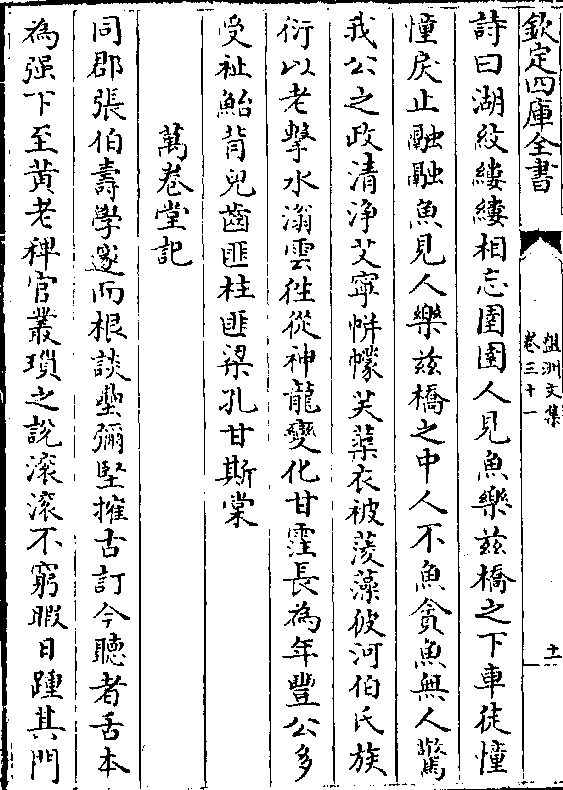 欽定四庫全書
盤洲文集
卷三十一
十一
詩曰湖紋縷縷相忘圉圉人見魚樂兹橋之下車徒憧
憧戾止融融魚見人樂兹橋之中人不魚貪魚無人驚
我公之政清浄艾寧帡幪芙蕖衣被菱藻彼河伯氏族
衍以老擊水滃雲徃從神龍變化甘霔長為年豐公多
受祉鮐背兒齒匪柱匪梁孔甘斯棠
萬卷堂記
同郡張伯壽學邃而根談壘彌堅摧古訂今聽者舌本
為强下至黄老稗官叢瑣之說滚滚不窮暇日踵其門